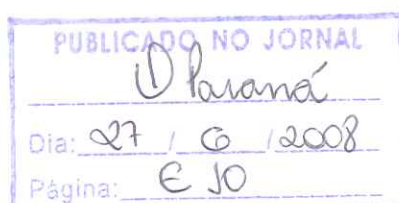 PUBLICADO NO JORNAL
O Paraná
Dia: 27 / 6 / 2008
Página: E 10